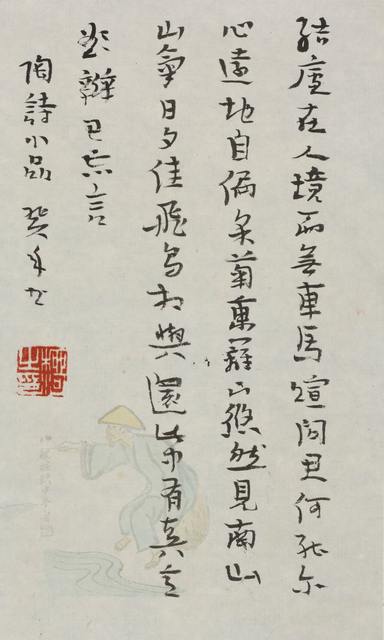 結廬在人境而無車馬喧問君何能尔
心遠地自偏采菊東籬下悠然見南山
山氣日夕佳飛鳥相與還此中有真意
欲辯已忘言
陶詩小品 癸